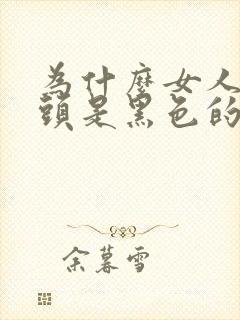 為什麼女人
頭是黑色的
余暮雪